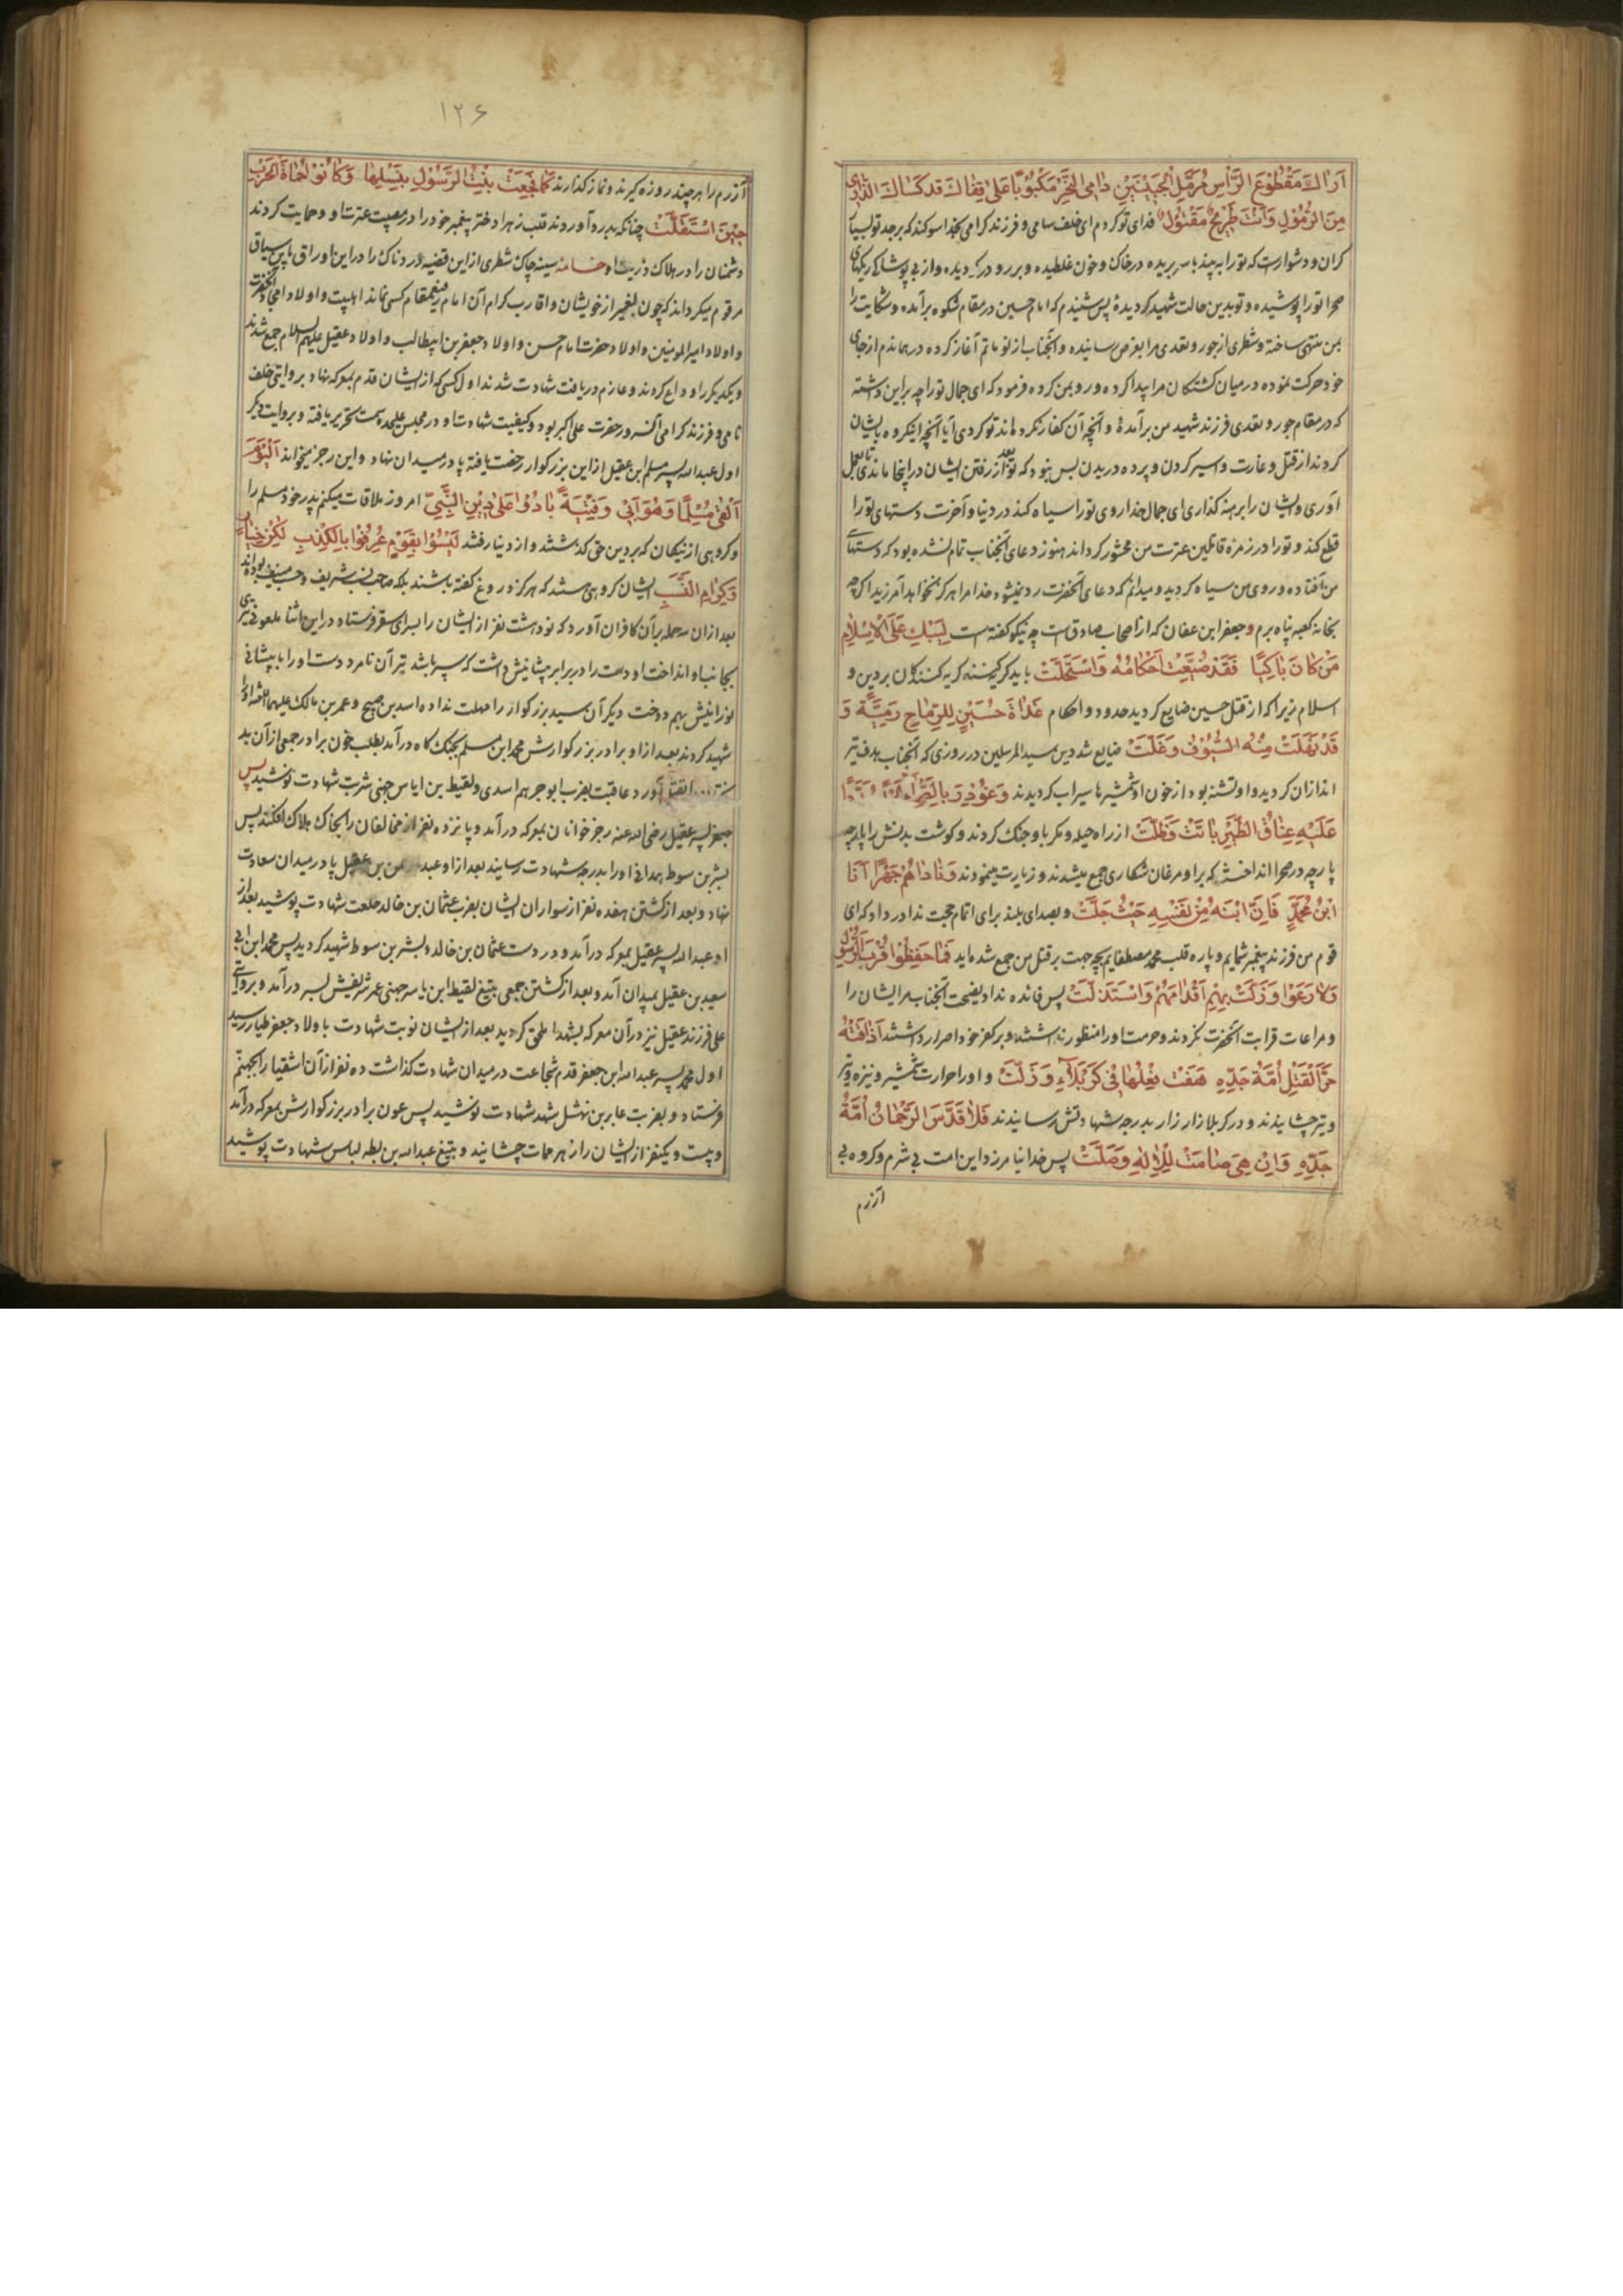 اَراكَ مَقْطُوعَ الرَّأسِ مُرَمَّلَ الْجَبینَیْنِ دامِیَ النَّحْرِ مَکْبُوبًا عَلی قِفاكَ قد کَساكَ الذاری
مِنَ الرُّمُولِ وَاَنْتَ طَریحٌ مَقْتُولٌ فدای تو کردم ای خلف سامی و فرزند کرامی بخدا سوکند که بر جد تو بسیا
کران و دشوارست که تو را به بیند با سر بریده در خاک و خون غلطیده و بر رو در دیده و از بی پوشاکی ریکهای
صحرا تو را پوشیده و تو بدین حالت شهید کردیدهٔ پس شنیدم که امام حسین در مقام شکوه برآمده و شکایت را
بمن منتهی ساخته و شطری از جور و تعدی مرا بعرض رسانیده و آنجناب از نو ماتم آغاز کرده در هماندم از جای
خود حرکت نموده در میان کشتکان مرا پیدا کرده و رو بمن کرده فرمود که ای جمال تو را چه بر این داشته
که در مقام جور و تعدی فرزند شهید من برآمدهٔ و آنچه آن کفار نکرده اند تو کردی آیا آنچه اینکروه بایشان
کردند از قتل و غارت و اسیر کردن و پرده دریدن بس نبود که تو بعد از رفتن ایشان در اینجا ماندی تا بعمل
آوری و ایشان را برهنه کذاری ای جمال خدا روی تو را سیاه کند در دنیا و آخرت دستهای تو را
قطع کند و تو را در زمره قاتلین عترت من محشور کرداند هنوز دعای آنجناب تمام نشده بود که دستهای
من افتاده و روی من سیاه کردید و میدانم که دعای آنحضرت رد نمیشود و خدا مرا هرکز نخواهد آمرزید اکرچه
بخانه کعبه پناه برم و جعفر ابن عفان که از اصحاب صادق است چه نیکو کفته است لِیَبْكِ عَلَی الْاِسْلامِ
مَنْ کانَ باکِیًا فَقَدْ ضُیِّعَتْ اَحْکامُهُ وَاسْتُحِلَّتْ باید که کریه کنند کریه کنندکان بر دین و
اسلام زیرا که از قتل حسین ضایع کردید حدود و احکام غَداةَ حُسَیْنٍ لِلرِّماحِ رَمِیَّةً وَ
قَدْ نَهَلَتْ مِنْهُ السُّیُوفُ وَعَلَّتْ ضایع شد دین سید المرسلین در روزی که آنجناب هدف تیر
اندازان کردید و او تشنه بود از خون او شمشیرها سیراب کردیدند وَغُودِرَ بِالصَّحْراءِ
عَلَیْهِ عِتاقُ الطَّیْرِ باتَتْ وَظَلَّتْ از راه حیله و مکر با او جنک کردند و کوشت بدنش را پارچه
پارچه در صحرا انداختند که بر او مرغان شکاری جمع میشدند و زیارت مینمودند وَناداهُمْ جَهْرًا اَنَا
ابْنُ مُحَمَّدٍ فَاِنَّ ابْنَهُ مِنْ نَفْسِهِ حَیْثُ حَلَّتْ و بصدای بلند برای اتمام حجت ندا در داد که ای
قوم من فرزند پیغمبر شمایم و پاره قلب محمد مصطفایم بچه جهت بر قتل من جمع شده اید فَما حَفِظُوا قُرْبَ الرَّسُولِ
وَلا رَعَوْا وَزَلَّتْ بِهِمْ اَقْدامُهُمْ وَاسْتُزِلَّتْ پس فائده نداد نصیحت آنجناب مر ایشان را
و مراعات قرابت آنحضرت نکردند و حرمت او را منظور نداشتند و بر کفر خود اصرار داشتند اَذاقَتْهُ
حَرَّ الْقَتْلِ اُمَّةُ جَدِّهِ هَفَتْ بِفِعْلِها فی کَرْبَلاءِ وَزَلَّتْ و او را حرارت شمشیر و نیزه و تیر
و تبر چشانیدند و در کربلا زار زار بدرجه شهادتش رسانیدند فَلا قَدَّسَ الرَّحْمانُ اُمَّةَ
جَدِّهِ وَاِنْ هِیَ صامَتْ لِلْاِلهِ وَصَلَّتْ پس خدا نیامرزد این امت بی شرم و کروه بی
آزرم
۱۲۶
آزرم را هر چند روزه کیرند و نماز کذارند کَما فَجَعَتْ بِنْتَ الرَّسُولِ بِنَسْلِها وَکانُوا حُماةَ الْحَرْبِ
حینَ اسْتَقَلَّتْ چنانکه بدرد آوردند قلب زهرا دختر پیغمبر خود را در مصیبت عترت او و حمایت کردند
دشمنان را در هلاک ذریت او خامهٔ سینه چاک شطری از این قضیه دردناک را در این اوراق باین سیاق
مرقوم میکرداند که چون بغیر از خویشان و اقارب کرام آن امام رفیع مقام کسی نماند اهلبیت و اولاد امجاد آنحضرت
و اولاد امیر المومنین و اولاد حضرت امام حسن و اولاد جعفر بن ابیطالب و اولاد عقیل علیهم السلام جمع شدند
و یکدیکر را وداع کردند و عازم دریافت شهادت شدند اول کسی که از ایشان قدم بمعرکه نهاد بروایتی خلف
نامی و فرزند کرامی آنسرور حضرت علی اکبر بود و کیفیت شهادت او در مجلس علیحده سمت تحریر یافته و بروایت دیکر
اول عبدالله پسر مسلم ابن عقیل از این بزرکوار رخصت یافته پا در میدان نهاد و این رجز میخواند اَلْیَوْمَ
اَلْقی مُسْلِمًا وَهُوَ اَبی وَفِتْیَةً بادُوا عَلی دینِ النَّبِیِّ امروز ملاقات میکنم پدر خود مسلم را
و کروهی از نیکان که بر دین حق کذشتند و از دنیا رفتند لَیْسُوا بِقَوْمٍ عُرِفُوا بِالْکِذْبِ لکِنْ خِیارٌ
وَکِرامِ النَّسَبِ ایشان کروهی هستند که هرکز دروغ کفته باشند بلکه صاحب نسب شریف و حسب منیف بودند
بعد از آن سه حمله بر آن کافران آورد که نود و هشت نفر از ایشان را بسرای سقر فرستاد در این اثنا ملعونی تیری
بجانب او انداخت او دست را در برابر پیشانیش داشت که سپر باشد تیر آن نامرد دست او را با پیشانی
نورانیش بهم دوخت دیکر آن سید بزرکوار را مهلت نداده اسد بن صبیح و عمر بن مالک علیهما اللعنه او را
شهید کردند بعد از او برادر بزرکوارش محمد ابن مسلم بجنکگاه درآمد بطلب خون برادر جمعی از آن بد
آورد عاقبت بضرب ابو جرهم اسدی و لقیط بن ایاس جهنی شربت شهادت نوشید پس
جعفر پسر عقیل رضی الله عنه رجز خوانان بمعرکه درآمد و پانزده نفر از مخالفان را بخاک هلاک افکند پس
بشر بن سوط همدانی او را بدرجه شهادت رسانید بعد از او عبد بن عقیل پا در میدان سعادت
نهاد و بعد از کشتن هفده نفر از سواران ایشان بضرب عثمان بن خالد خلعت شهادت پوشید بعد از
او عبدالله پسر عقیل بمعرکه درآمد و در دست عثمان بن خالد و بشر بن سوط شهید کردید پس محمد ابن ابی
سعید بن عقیل بمیدان آمد و بعد از کشتن جمعی بتیغ لقیط ابن یاسر جهنی عمر شریفش بسر درآمد و بروایتی
علی فرزند عقیل نیز در آن معرکه بشهدا ملحق کردید بعد از ایشان نوبت شهادت باولاد جعفر طیار رسید
اول محمد پسر عبدالله ابن جعفر قدم شجاعت در میدان شهادت کذاشت ده نفر از آن اشقیا را بجهنم
فرستاد و بضرب عامر بن نهشل شهد شهادت نوشید پس عون برادر بزرکوارش بمعرکه درآمد
و بیست و یکنفر از ایشان را زهر ممات چشانید و بتیغ عبدالله بن بطه لباس شهادت پوشید